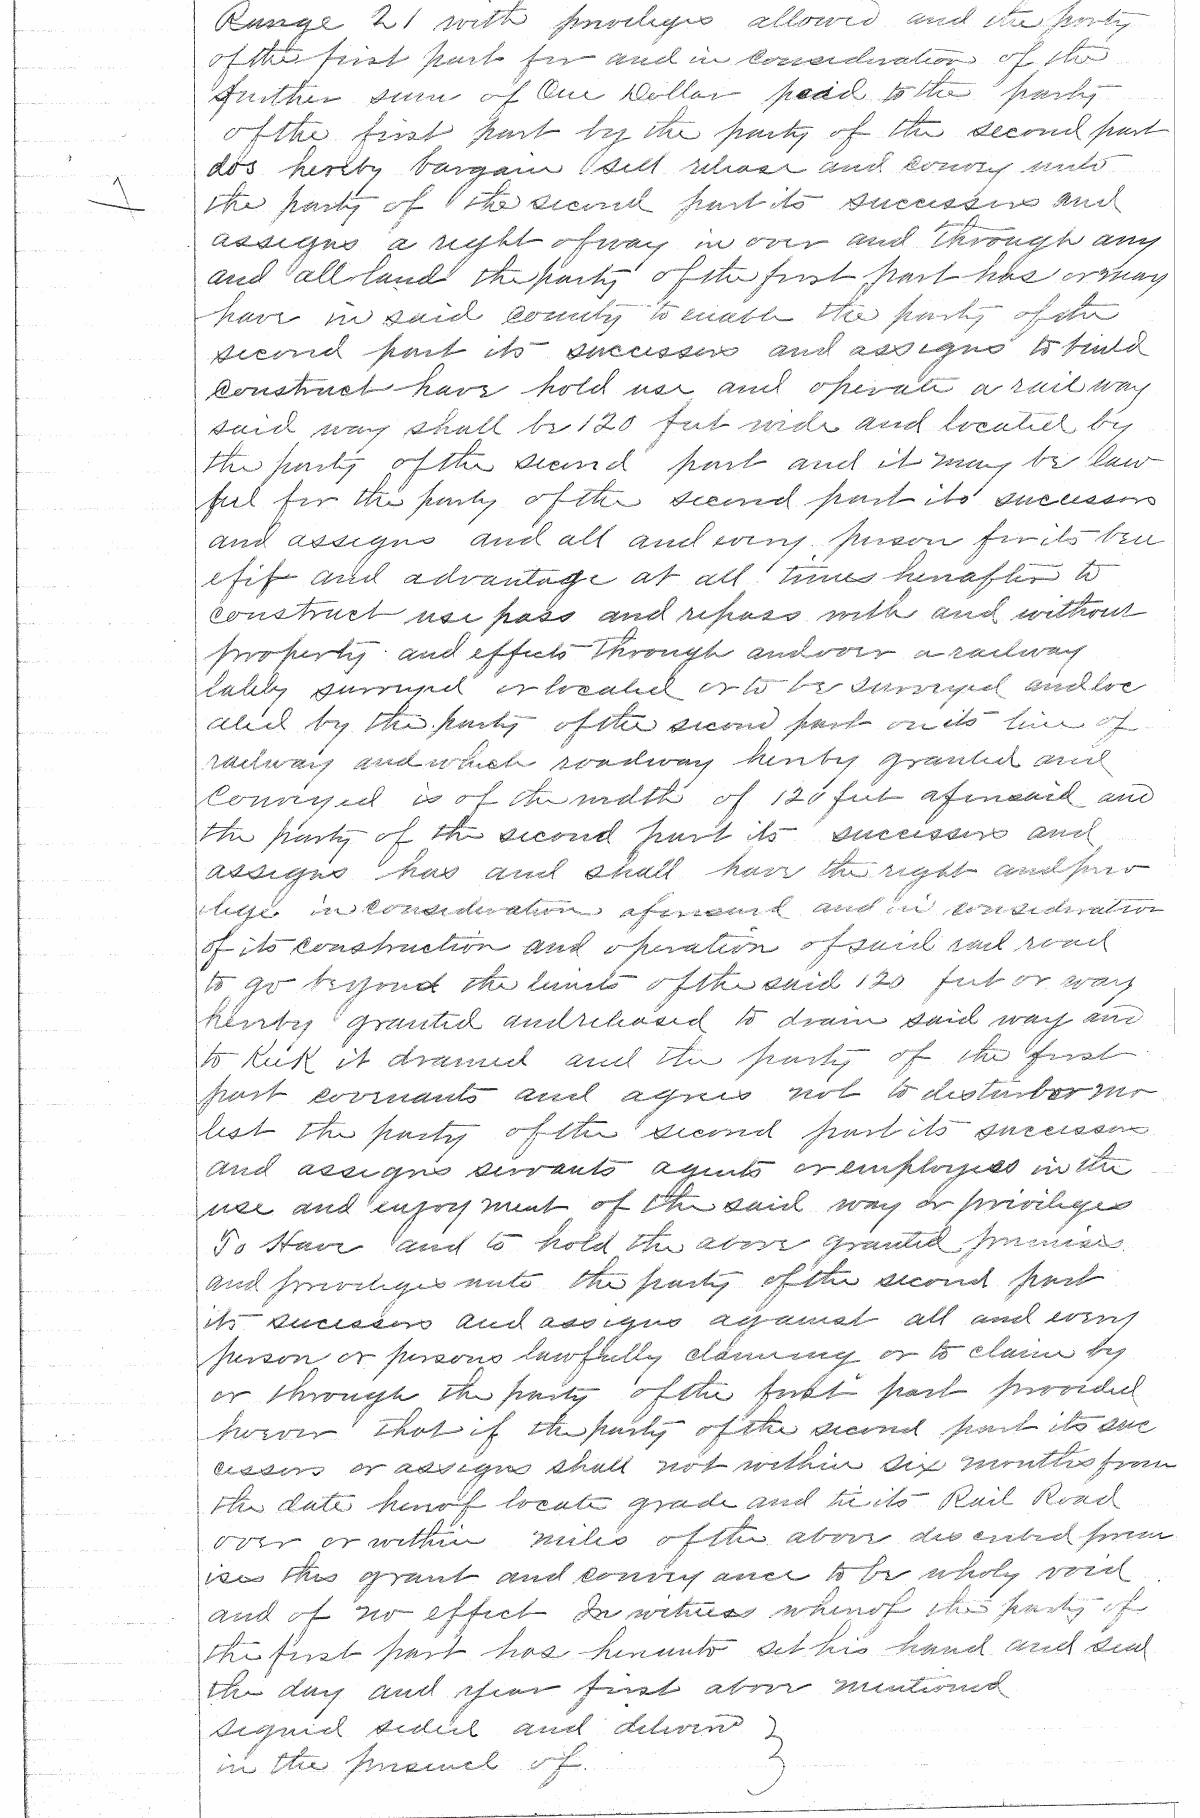 Range 21 with priveleges allowed and the party
of the first part for and in consideration of the
further sum of One Dollar paid to the party
of the first part by the party of the second part
dos hereby bargain sell release and convey unto
the party of the second part its successors and
assigns a right of way in over and through any
and all land the party of the first part has or may
have in said county to enable the party of the
second part its successors and assigns to build
construct have hold use and operate a rail way
said way shall be 120 feet wide and located by
the party of the second part and it may be law
ful for the party of the second part its successors
and assigns and all and every person for its ben
efit and advantage at all times hereafter to
construct use pass and repass with and without
property and effects through and over a railway
lately surveyed or located or to be surveyed and loc
ated by the party of the second part on its line of
railway and which roadway hereby granted and
conveyed is of the width of 120 feet aforesaid and
the party of the second part its successors and
assigns has and shall have the right and priv
ilege in consideration aforesaid and in consideration
of its construction and operation of said rail road
to go beyond the limits of the said 120 feet or way
hereby granted and released to drain said way and
to keek it drained and the party of the first
part covenants and agrees not to disturb or mo
lest the party of the second part its successors
and assigns servants agents or employees in the
use and enjoyment of the said way or privileges
To Have and to hold the above granted premises
and priveleges unto the party of the second part
its sucessors and assigns against all and every
person or persons lawfully claiming or to claim by
or through the party of the first part provided
hoever that if the party of the second part its suc
cessors or assigns shall not within six months from
the date hereof locate grade and tie its Rail Road
over or within miles of the above described prem
ises this grant and conveyance to be wholy void
and of no effect In witness whereof the party of
the first part has hereunto set his hand and seal
the day and year first above mentioned
signed sealed and delivered
in the presence of.